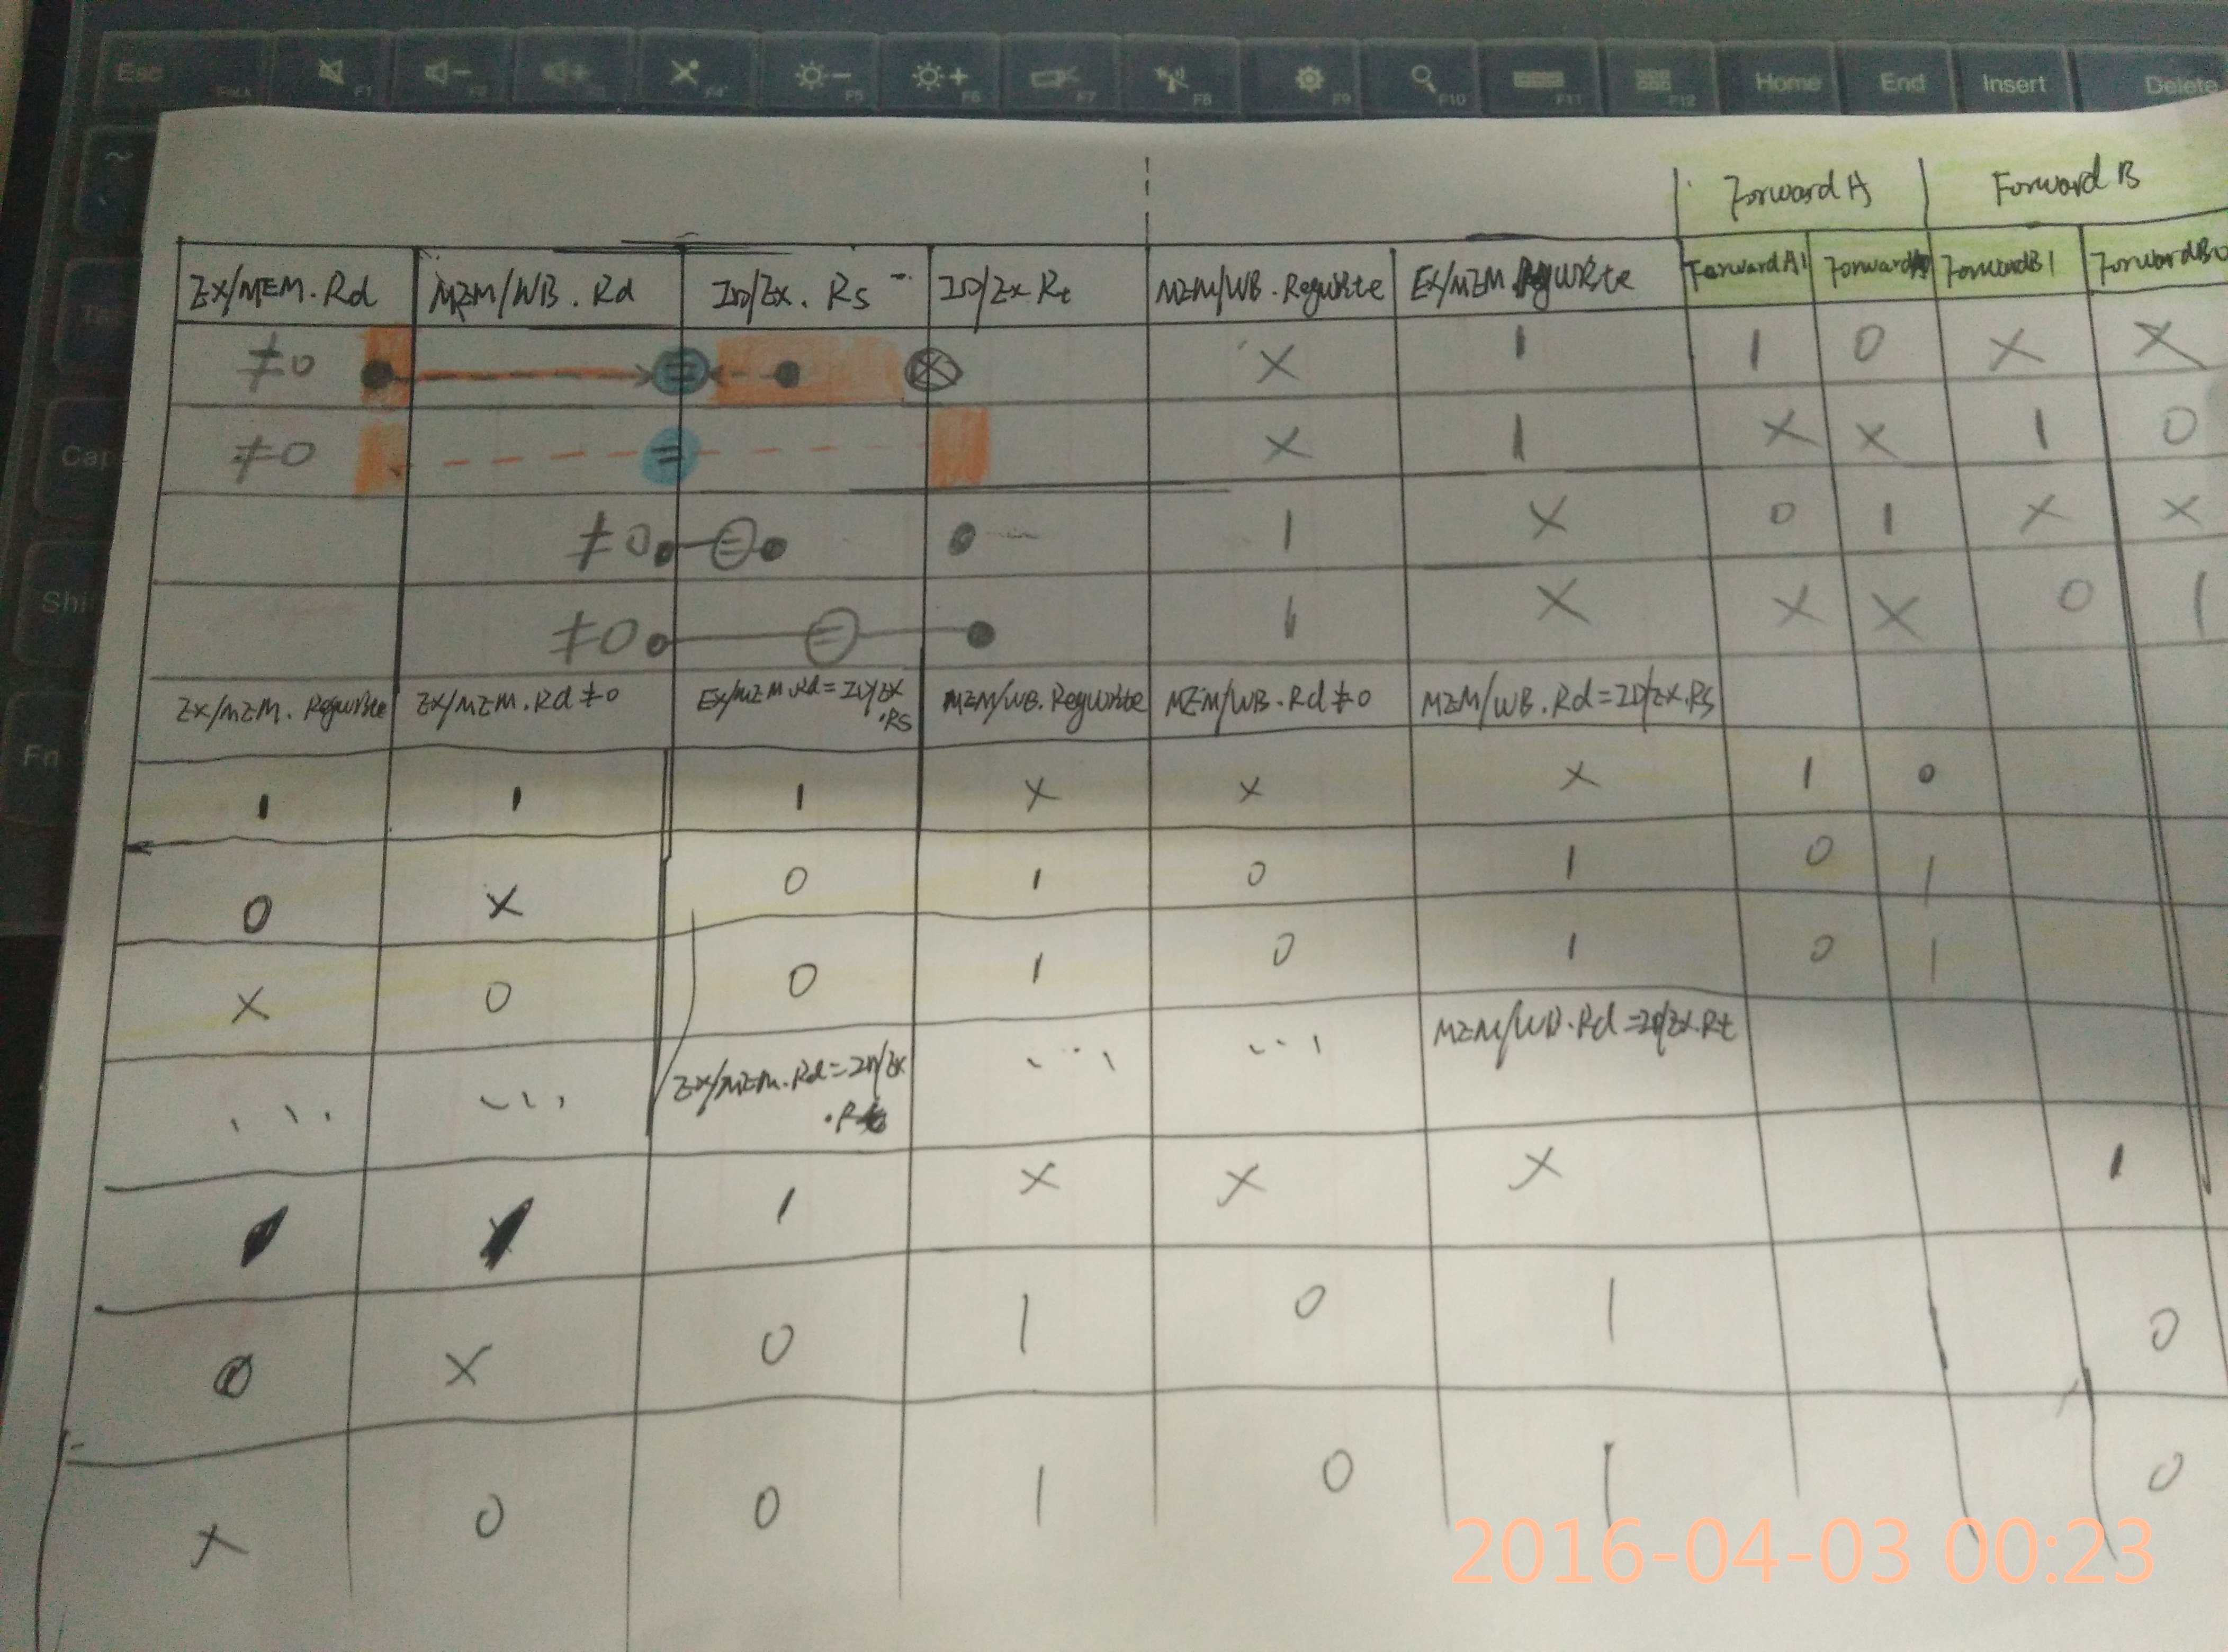 Esc FnLk F1 F2 F3 F4 F5 F6 F7 F8 F9 F10 F11 F12 Home End Insert Delete
~
Forward A Forward B
EX/MEM.Rd MEM/WB.Rd ID/EX.Rs ID/EX.Rt MEM/WB.RegWrite EX/MEM RegWrite ForwardA1 ForwardB1 ForwardB0
≠0 = X 1 1 0 X X
Cap
≠0 = X 1 X X 1 0
≠0 = 1 X 0 1 X X
Shi
≠0 = 1 X X X 0 1
EX/MEM.RegWrite EX/MEM.Rd≠0 EX/MEM.Rd=ID/EX MEM/WB.RegWrite MEM/WB.Rd≠0 MEM/WB.Rd=ID/EX.Rs
.Rs
Fn
1 1 1 X X X 1 0
0 X 0 1 0 1 0 1
X 0 0 1 0 1 0 1
... ... EX/MEM.Rd=ID/EX ... ... MEM/WB.Rd=ID/EX.Rt
.Rt
1 X X X 1
0 X 0 1 0 1 0
X 0 0 1 0 1 0
2016-04-03 00:23